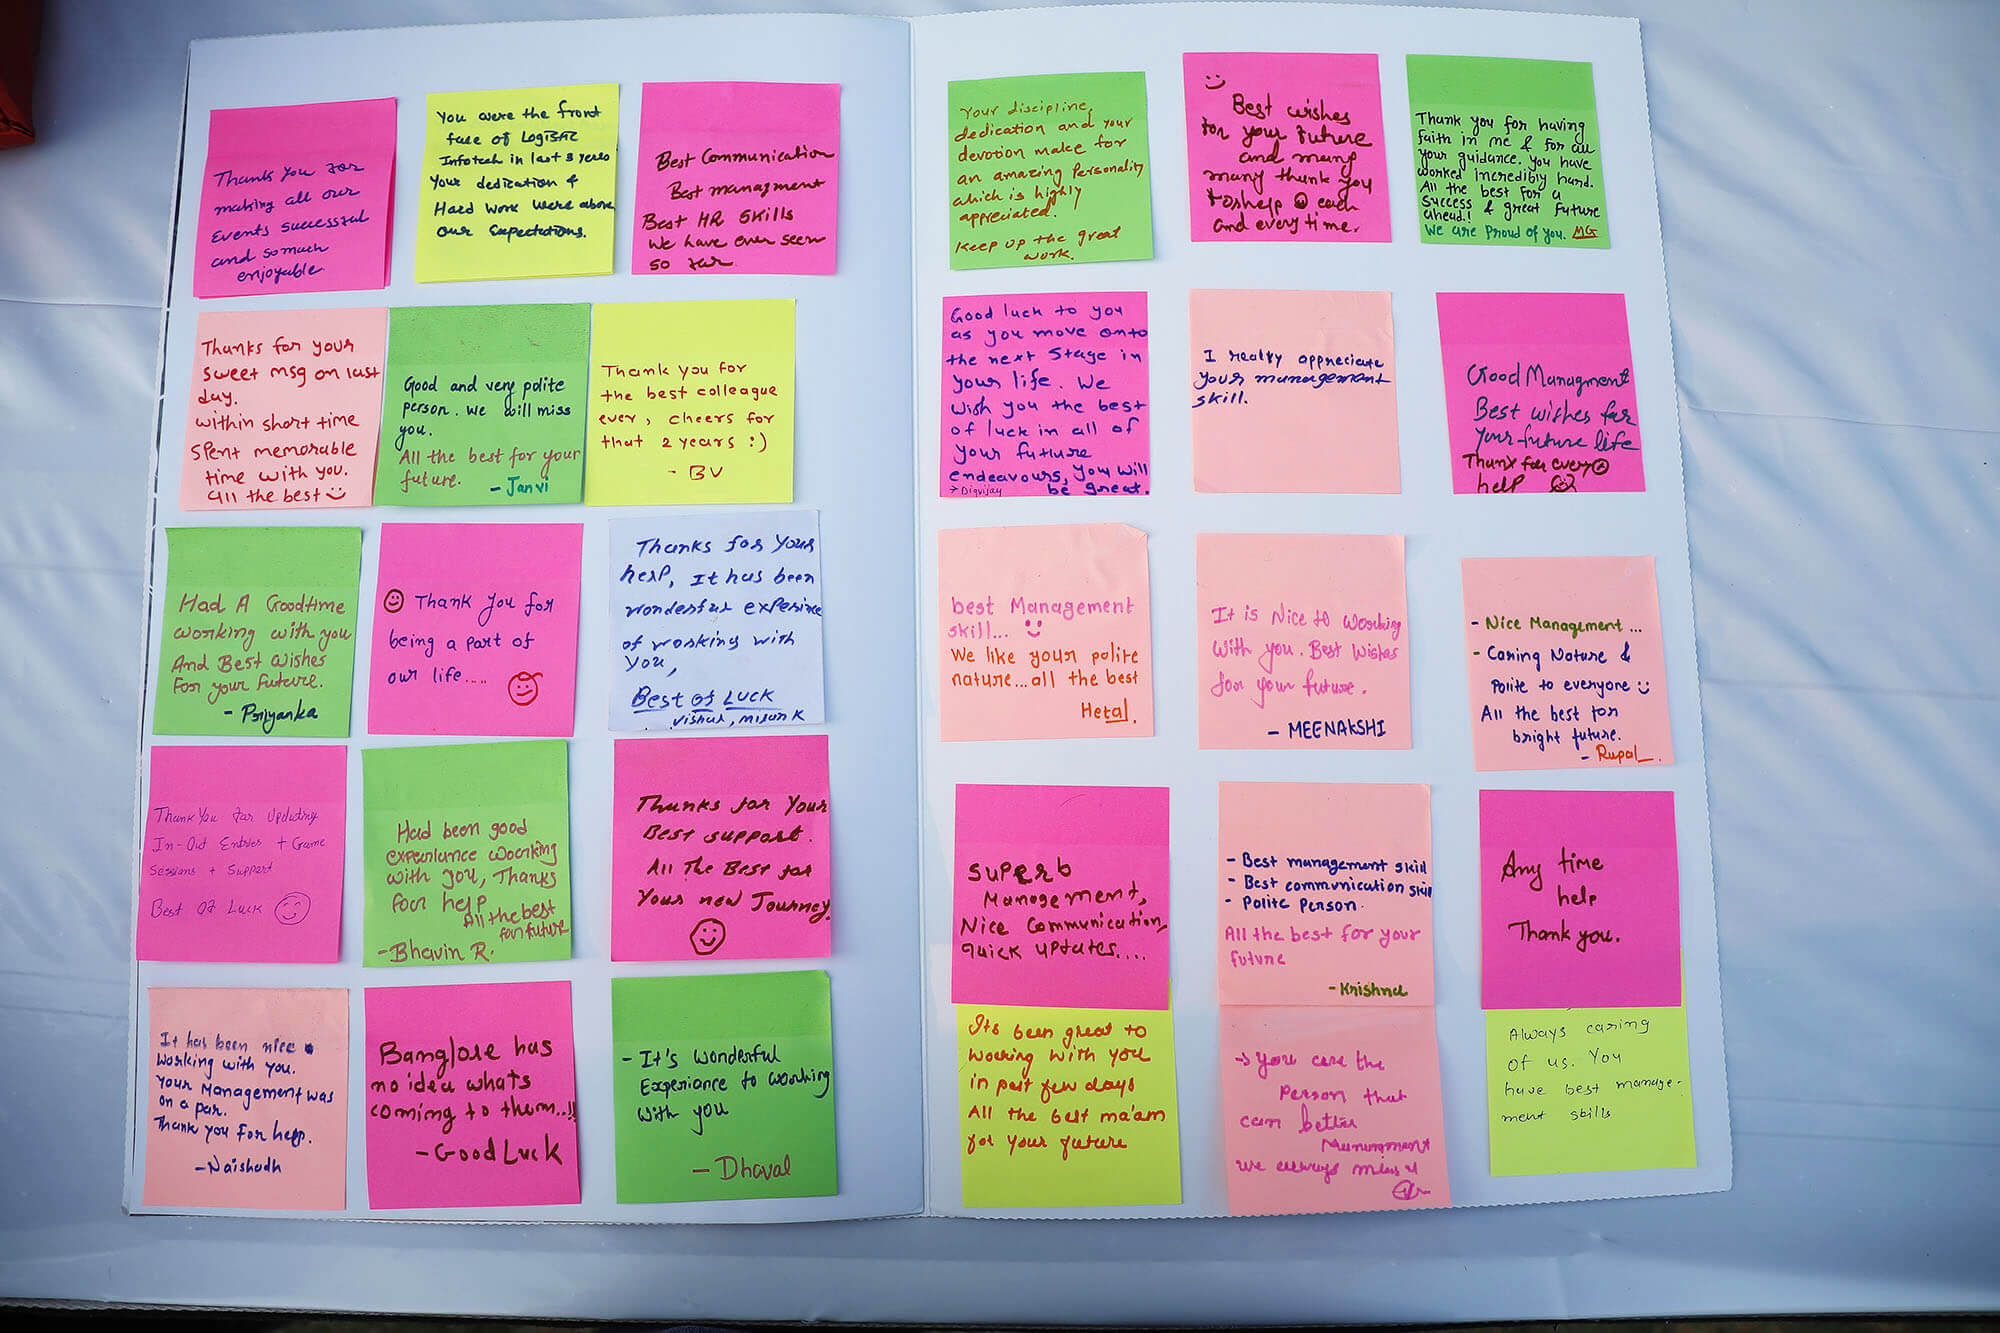 Thank you for
making all our
Events successful
and so much
enjoyable
You were the front
face of Logistic
Infotech in last 3 years
Your dedication &
Hard work were above
our expectations.
Best Communication
Best managment
Best HR Skills
We have ever seen
so far
Thanks for your
sweet msg on last
day.
within short time
spent memorable
time with you.
all the best
Good and very polite
person. we will miss
you.
All the best for your
future.
- Janvi
Thank you for
the best colleague
ever, cheers for
that 2 years :)
- BV
Had A Goodtime
working with you
And Best wishes
For your future.
- Priyanka
Thank you for
being a part of
our life.....
Thanks for your
help, It has been
wonderful
of working with
you,
Best of Luck
Thank You For Updating
In-Out Entries + Game
Sessions + Support
Best Of Luck
Had been good
experiance woorking
with you, Thanks
foor help
All the best
for future
- Bhavin R.
Thanks for Your
Best support.
All The Best for
Your new Journey.
It has been nice
working with you.
Your Management was
on a par.
Thank you for help.
- Naishadh
Banglore has
no idea whats
coming to them...!!
- Good Luck
- It's wonderful
Experiance to working
with you
- Dhaval
Your discipline,
dedication and your
devotion make for
an amazing Personality
which is highly
appreciated.
Keep up the great
work.
Best wishes
for your future
and many
many thank you
to help @ each
and every time.
Thank you for having
faith in me & for all
your guidance. you have
worked incredibly hard.
All the best for a
success & great future
ahead.!
We are proud of you. MG
Good luck to you
as you move onto
the next stage in
your life. We
wish you the best
of luck in all of
your future
endeavours, you will
be great.
→ Digvijay
I really appreciate
your management
skill.
Good Managment
Best wishes for
your future life
Thank for every
help
best Management
skill...
We like your polite
nature...all the best
Hetal.
It is Nice to woorking
with you. Best wishes
for your future.
- MEENAKSHI
- Nice Management ...
- Caring Nature &
Polite to everyone
All the best for
bright future.
- Rupal
Superb
Management,
Nice Communication,
quick updates....
- Best management skill
- Best communication skill
- Polite Person.
All the best for your
future
- Krishna
Any time
help
Thank you.
Its been great to
working with you
in past few days
All the best ma'am
for your future
→ you are the
Person that
can better
we always miss u
Always caring
of us. You
have best manage-
ment skills